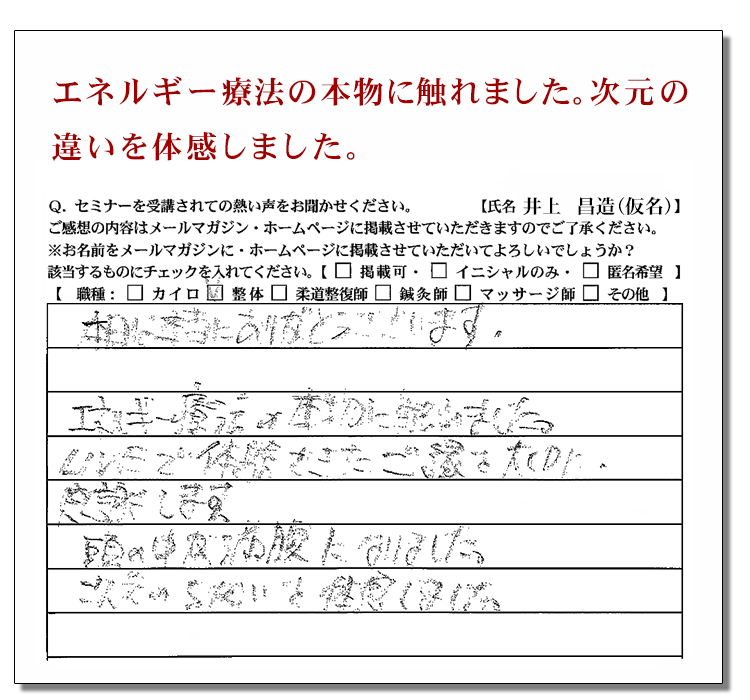 エネルギー療法の本物に触れました。次元の
違いを体感しました。
Q. セミナーを受講されての熱い声をお聞かせください。 【氏名 井上 昌造(仮名)】
ご感想の内容はメールマガジン・ホームページに掲載させていただきますのでご了承ください。
※お名前をメールマガジンに・ホームページに掲載させていただいてよろしいでしょうか?
該当するものにチェックを入れてください。【 □ 掲載可・ □ イニシャルのみ・ □ 匿名希望 】
【 職種: □ カイロ ☑ 整体 □ 柔道整復師 □ 鍼灸師 □ マッサージ師 □ その他 】
本日は本当にありがとうございます。
エネルギー療法の本物に触れました。
体験できたご縁を大切に、
感謝します
頭の中が満腹になりました。
次元のちがいを体感しました。